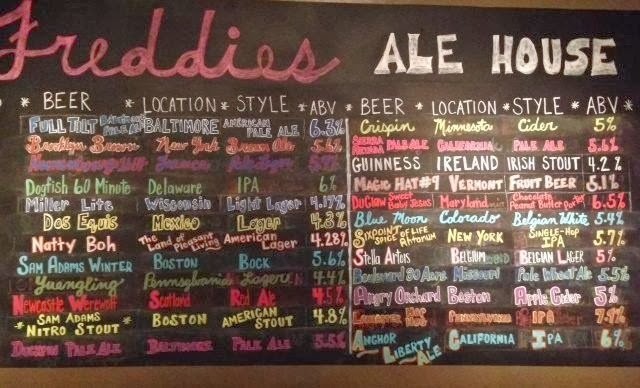 Freddies ALE HOUSE
* BEER * LOCATION * STYLE * ABV *
FULL TILT BALTIMORE PALE ALE BALTIMORE AMERICAN PALE ALE 6.3%
Brooklyn Brown New York Brown Ale 5.6%
Jamaica Pale Lager
Dogfish 60 Minute Delaware IPA 6%
Miller Lite Wisconsin Light Lager 4.17%
Dos Equis Mexico Lager 4.3%
Natty Boh The Land of Pleasant Living American Lager 4.28%
SAM ADAMS WINTER BOSTON BOCK 5.6%
Yuengling Pennsylvania Lager 4.4%
Newcastle Werewolf Scotland Red Ale 4.5%
SAM ADAMS *NITRO STOUT* BOSTON AMERICAN STOUT 4.8%
DUCKPIN PALE ALE BALTIMORE PALE ALE 5.5%
BEER * LOCATION * STYLE * ABV *
Crispin Minnesota Cider 5%
SIERRA NEVADA PALE ALE CALIFORNIA PALE ALE 5.6%
GUINNESS IRELAND IRISH STOUT 4.2%
MAGIC HAT #9 VERMONT FRUIT BEER 5.1%
DUCLAW SWEET BABY JESUS MARYLAND Chocolate Peanut Butter Porter 6.5%
Blue Moon Colorado Belgian White 5.4%
SIXPOINT SPICE OF LIFE NEW YORK SINGLE-HOP IPA 5.7%
Stella Artois BELGIUM BELGIAN LAGER 5%
Boulevard 80 Acre Missouri Pale Wheat Ale 5.5%
Angry Orchard Boston Apple Cider 5%
LANCASTER HOP HOG PENNSYLVANIA IPA 7.9%
ANCHOR LIBERTY ALE CALIFORNIA IPA 6%